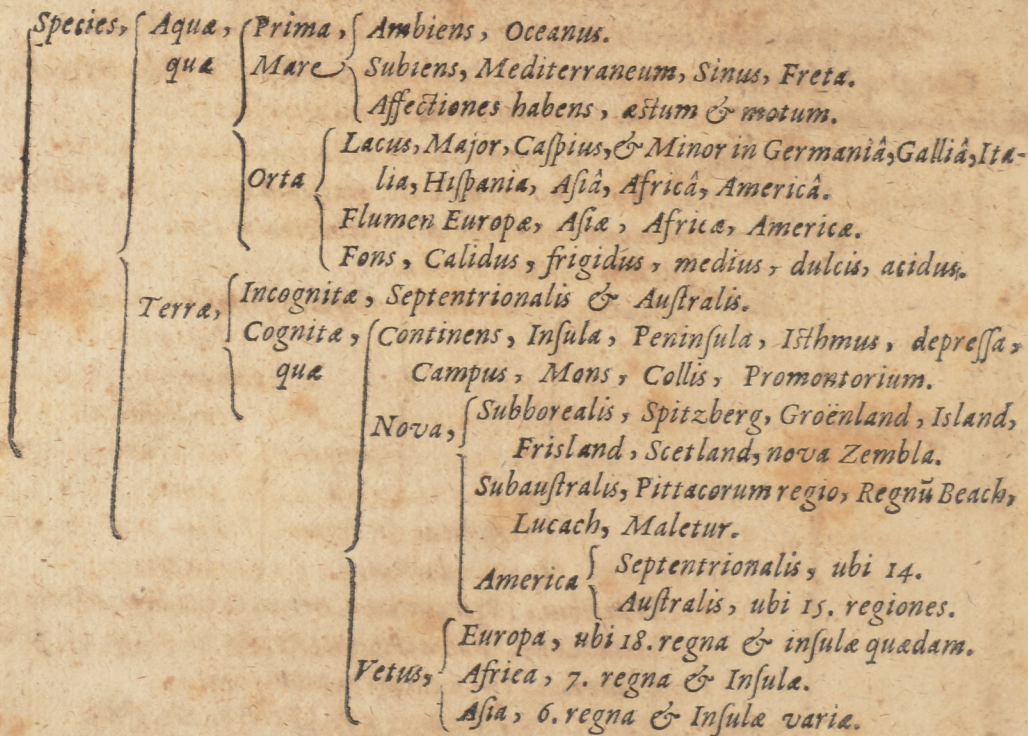 Species, Aquæ, Prima, Ambiens, Oceanus.
quæ Mare Subiens, Mediterraneum, Sinus, Freta.
Affectiones habens, æstum & motum.
Lacus, Major, Caſpius, & Minor in Germaniâ, Galliâ, Ita-
Orta lia, Hiſpania, Aſiâ, Africâ, Americâ.
Flumen Europæ, Aſiæ, Africæ, Americæ.
Fons, Calidus, frigidus, medius, dulcis, acidus.
Terræ, Incognitæ, Septentrionalis & Auſtralis.
Cognitæ, Continens, Inſula, Peninſula, Isthmus, depreſſa,
quæ Campus, Mons, Collis, Promontorium.
Nova, Subborealis, Spitzberg, Groënland, Island,
Frisland, Scetland, nova Zembla.
Subauſtralis, Pittacorum regio, Regnũ Beach,
Lucach, Maletur.
America Septentrionalis, ubi 14.
Auſtralis, ubi 15. regiones.
Europa, ubi 18. regna & inſulæ quædam.
Vetus, Africa, 7. regna & Inſulæ.
Aſia, 6. regna & Inſulæ variæ.